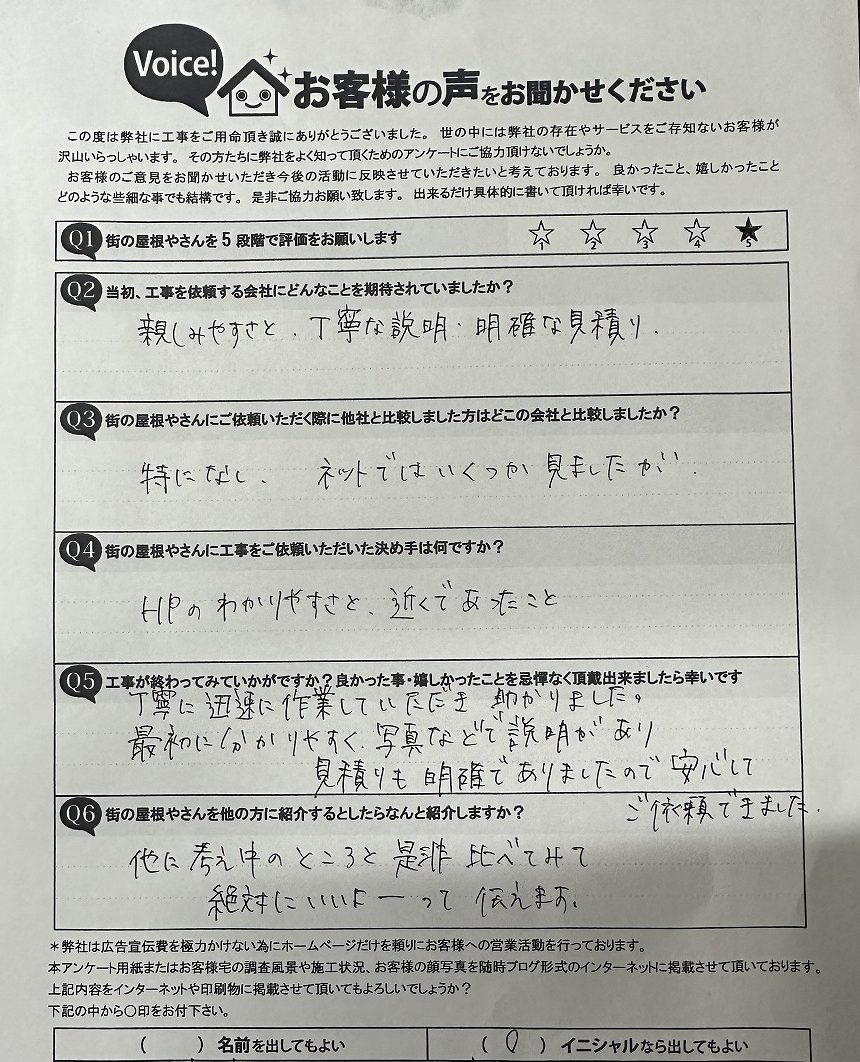 Voice!
お客様の声をお聞かせください
この度は弊社に工事をご用命頂き誠にありがとうございました。 世の中には弊社の存在やサービスをご存知ないお客様が
沢山いらっしゃいます。 その方たちに弊社をよく知って頂くためのアンケートにご協力頂けないでしょうか。
お客様のご意見をお聞かせいただき今後の活動に反映させていただきたいと考えております。 良かったこと、嬉しかったこと
どのような些細な事でも結構です。 是非ご協力お願い致します。 出来るだけ具体的に書いて頂ければ幸いです。
Q1 街の屋根やさんを5段階で評価をお願いします ☆ ☆ ☆ ☆ ★
1 2 3 4 5
Q2 当初、工事を依頼する会社にどんなことを期待されていましたか？
親しみやすさと、丁寧な説明・明確な見積り.
Q3 街の屋根やさんにご依頼いただく際に他社と比較しました方はどこの会社と比較しましたか？
特になし. ネットではいくつか見ましたが.
Q4 街の屋根やさんに工事をご依頼いただいた決め手は何ですか？
HPのわかりやすさと、近くであったこと
Q5 工事が終わってみていかがですか？良かった事・嬉しかったことを忌憚なく頂戴出来ましたら幸いです
丁寧に迅速に作業していただき助かりました。
最初に分かりやすく、写真などで説明があり
見積りも明確でありましたので安心して
ご依頼できました.
Q6 街の屋根やさんを他の方に紹介するとしたらなんと紹介しますか？
他に考え中のところと是非比べてみて
絶対にいいよーって伝えます。
＊弊社は広告宣伝費を極力かけない為にホームページだけを頼りにお客様への営業活動を行っております。
本アンケート用紙またはお客様宅の調査風景や施工状況、お客様の顔写真を随時ブログ形式のインターネットに掲載させて頂いております。
上記内容をインターネットや印刷物に掲載させて頂いてもよろしいでしょうか？
下記の中から〇印をお付下さい。
（　　）名前を出してもよい （ 〇 ）イニシャルなら出してもよい